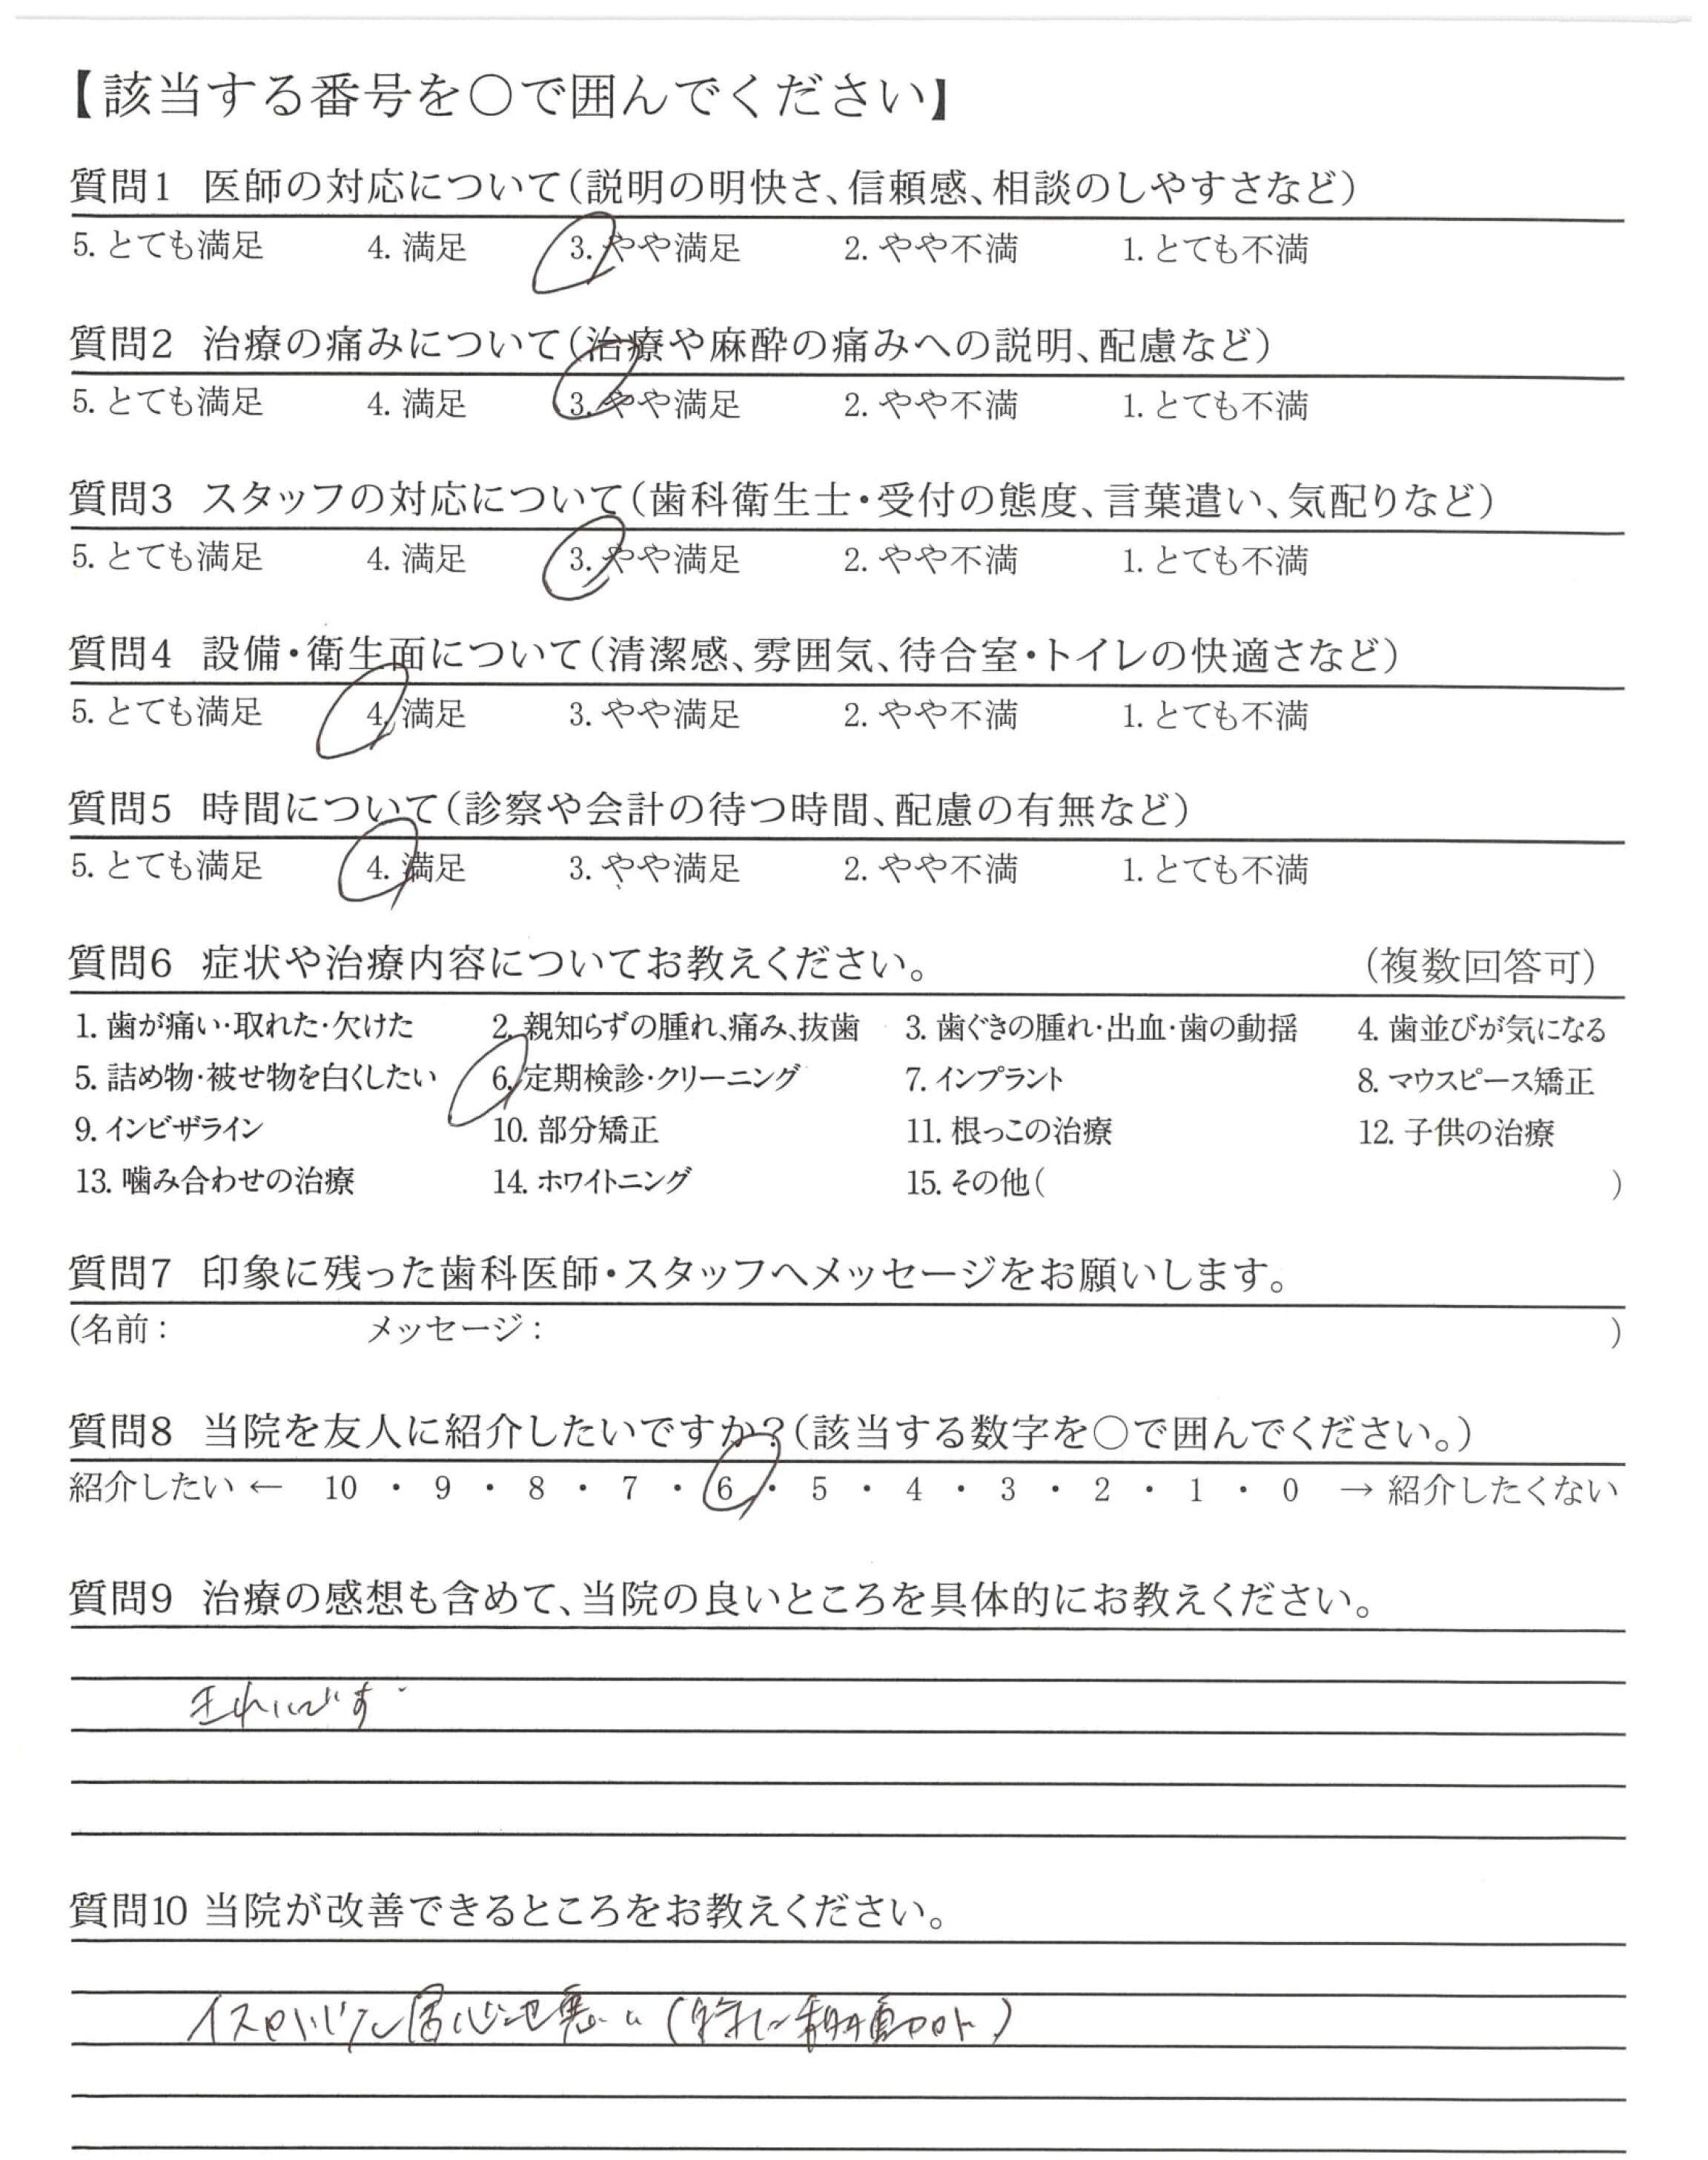 【該当する番号を○で囲んでください】
質問1 医師の対応について(説明の明快さ、信頼感、相談のしやすさなど)
5. とても満足 4. 満足 3. やや満足 2. やや不満 1. とても不満
質問2 治療の痛みについて(治療や麻酔の痛みへの説明、配慮など)
5. とても満足 4. 満足 3. やや満足 2. やや不満 1. とても不満
質問3 スタッフの対応について(歯科衛生士・受付の態度、言葉遣い、気配りなど)
5. とても満足 4. 満足 3. やや満足 2. やや不満 1. とても不満
質問4 設備・衛生面について(清潔感、雰囲気、待合室・トイレの快適さなど)
5. とても満足 4. 満足 3. やや満足 2. やや不満 1. とても不満
質問5 時間について(診察や会計の待つ時間、配慮の有無など)
5. とても満足 4. 満足 3. やや満足 2. やや不満 1. とても不満
質問6 症状や治療内容についてお教えください。 (複数回答可)
1. 歯が痛い・取れた・欠けた 2. 親知らずの腫れ、痛み、抜歯 3. 歯ぐきの腫れ・出血・歯の動揺 4. 歯並びが気になる
5. 詰め物・被せ物を白くしたい 6. 定期検診・クリーニング 7. インプラント 8. マウスピース矯正
9. インビザライン 10. 部分矯正 11. 根っこの治療 12. 子供の治療
13. 噛み合わせの治療 14. ホワイトニング 15. その他( )
質問7 印象に残った歯科医師・スタッフへメッセージをお願いします。
(名前: メッセージ: )
質問8 当院を友人に紹介したいですか?(該当する数字を○で囲んでください。)
紹介したい ← 10 ・ 9 ・ 8 ・ 7 ・ 6 ・ 5 ・ 4 ・ 3 ・ 2 ・ 1 ・ 0 → 紹介したくない
質問9 治療の感想も含めて、当院の良いところを具体的にお教えください。
きれいです
質問10 当院が改善できるところをお教えください。
居心地悪い(特に